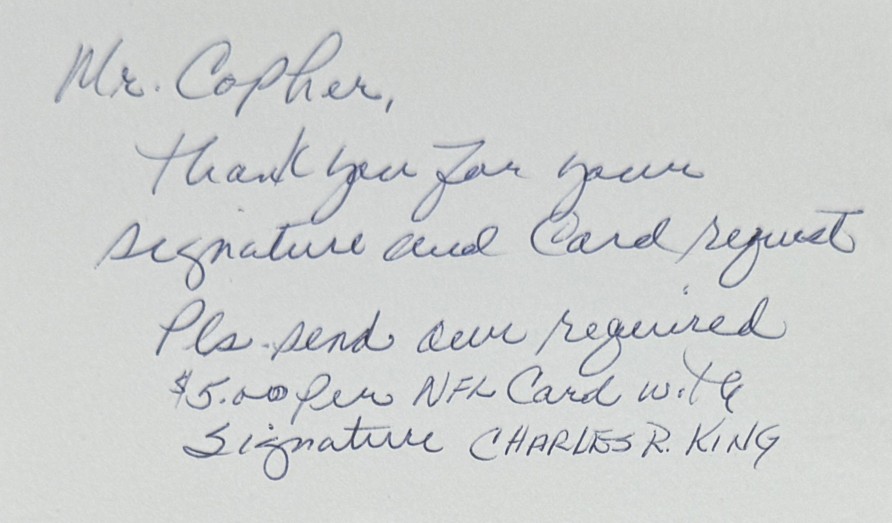 Mr. Copher,
Thank you for your
signature and Card request
Pls. send our required
$5.00 per NFL Card with
Signature CHARLES R. KING